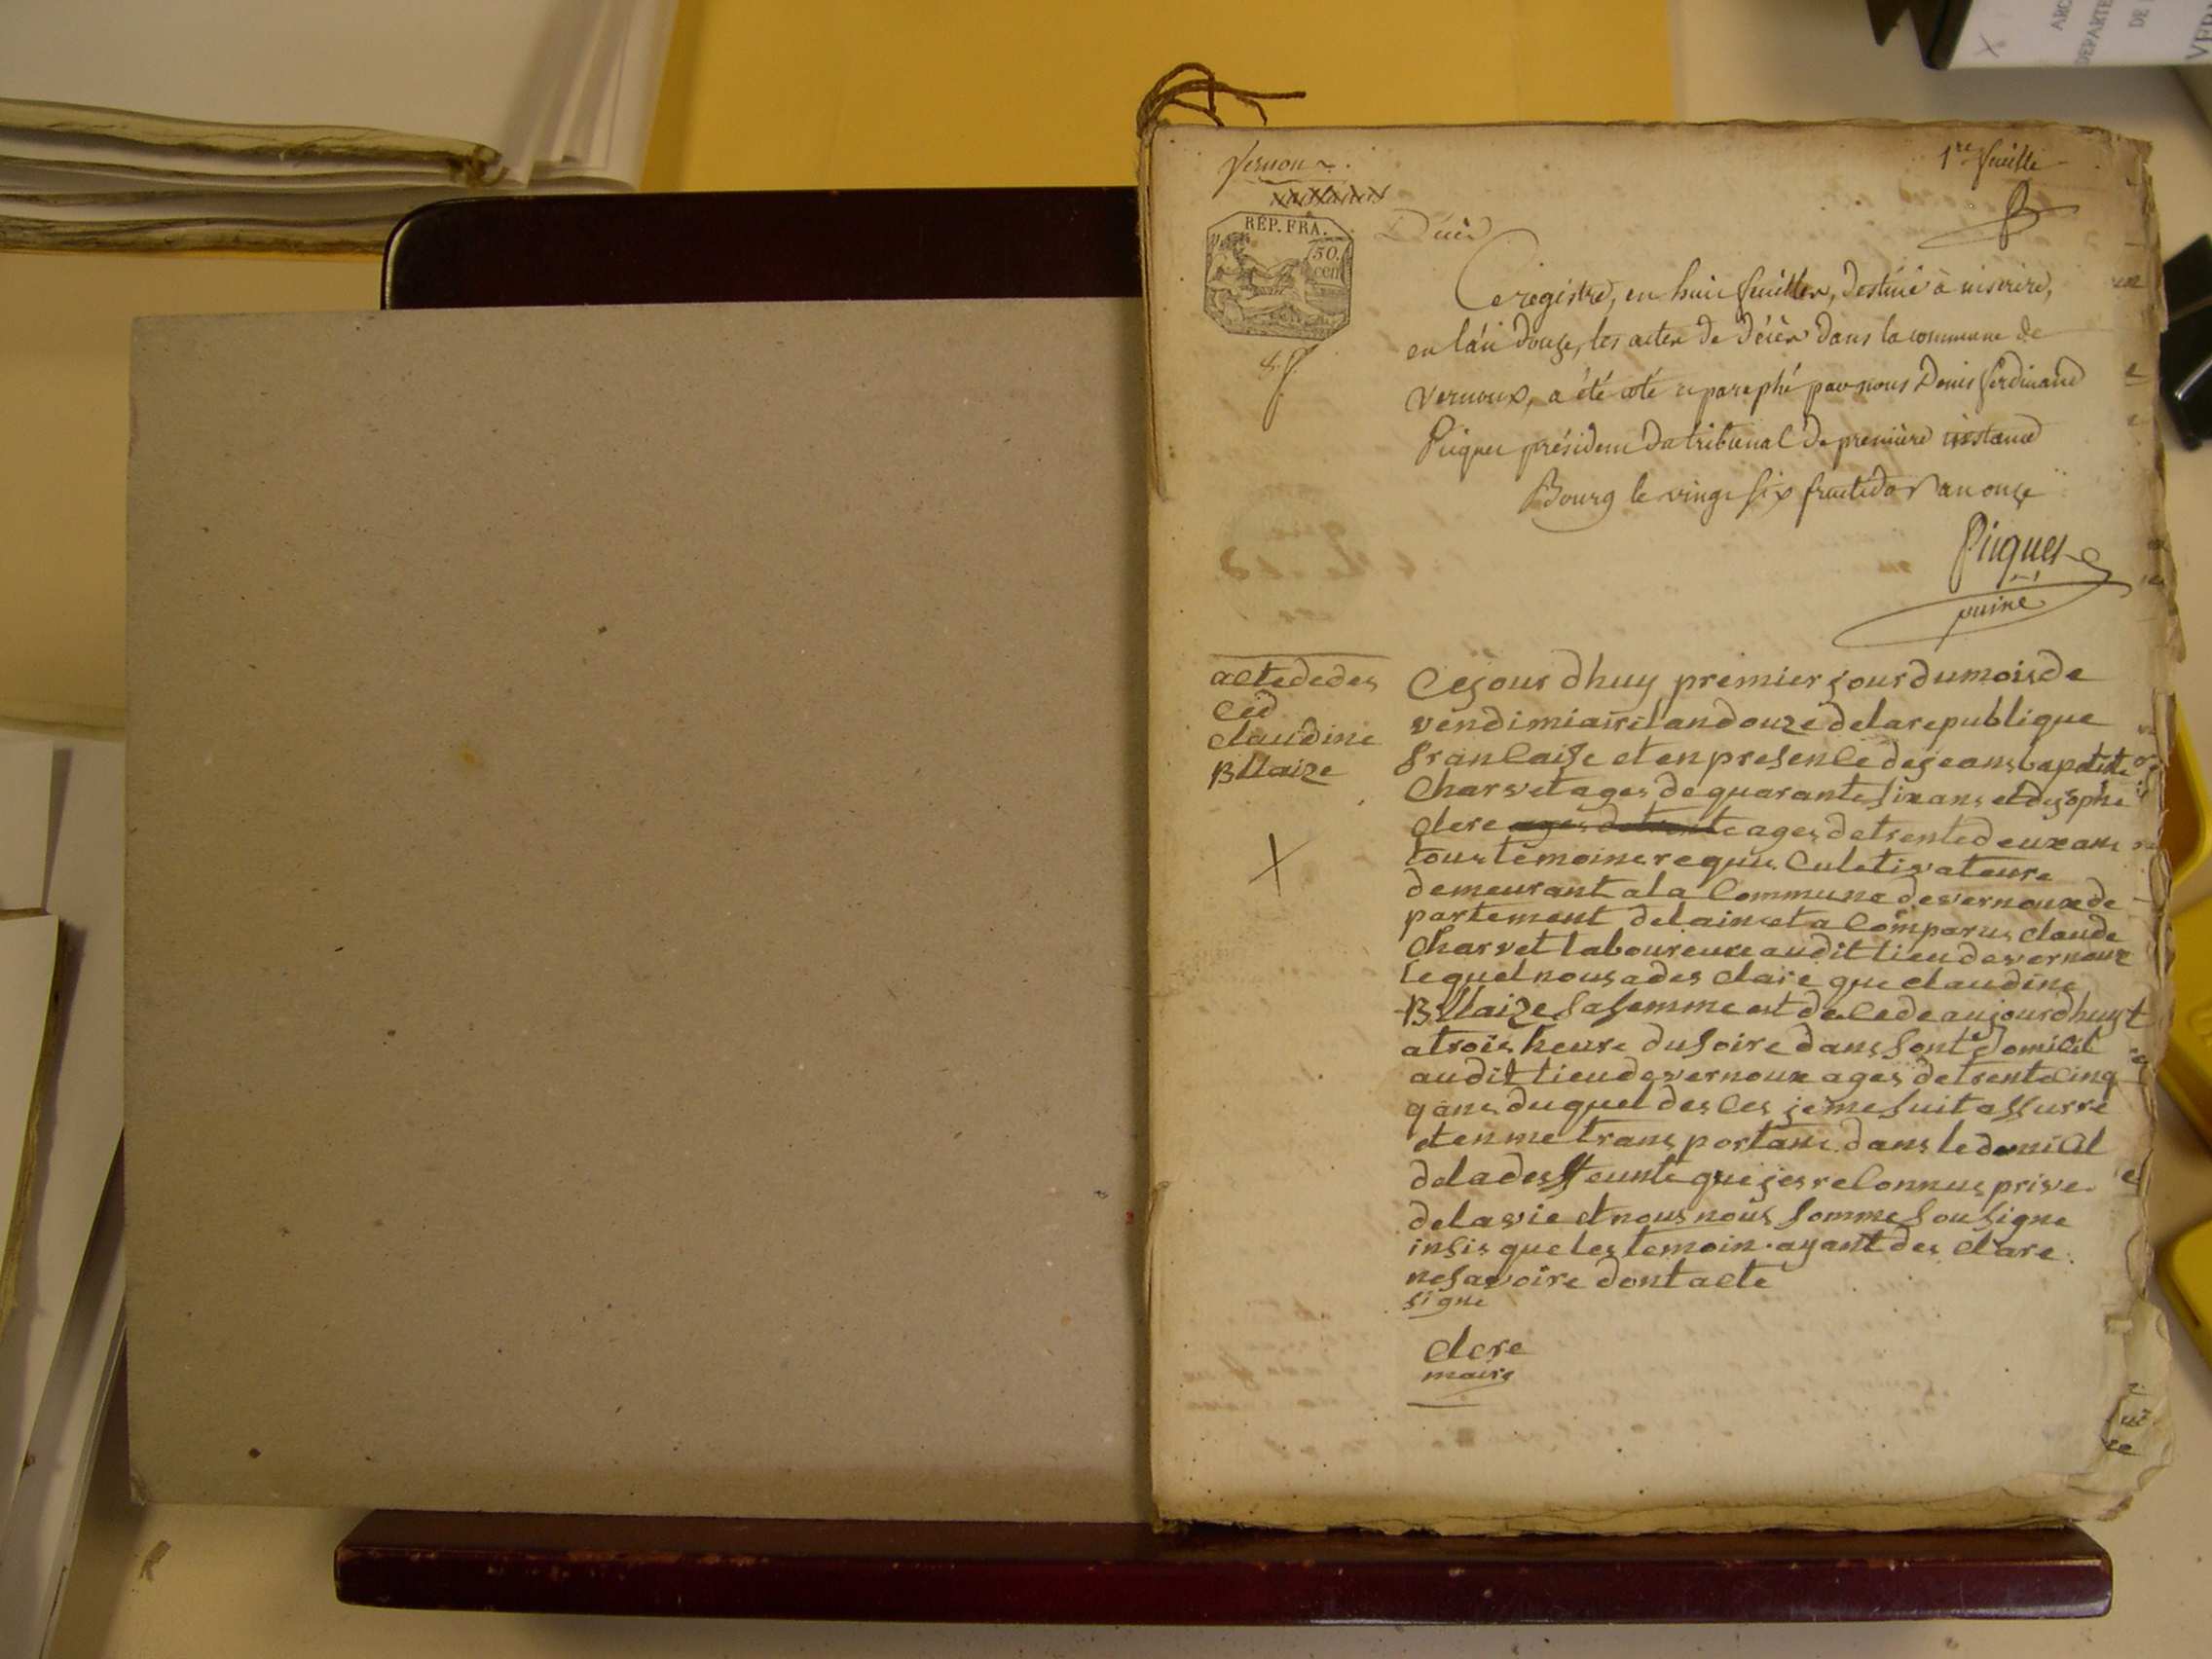 ARC
DEPARTE
DE
VER
1re feuille
Vernoux
naissances
Décès
REP. FRA.
50.
cen
Ce registre, en huit feuilles, destiné à inscrire,
en l'an douze, les actes de décès dans la commune de
Vernoux, a été coté et paraphé par nous Denis ferdinand
Picquet président du tribunal de première instance
Bourg le vingt six fructidor an onze
Picquet
puiné
acte de des
cid
claudine
Bllaize
Cejour dhuy premier jour du mois de
vendimiaire lan douze de la republique
francaise et en presence de jeans bapttiste
Charvet ages de quarante six ans et de jophe
clere ages de trente ages de trente deux ans
tous temoines requis Culetivateure
demeurant a la Commune de vernoux de
partement de lain et a comparus claude
Charvet laboureure audit lieu de vernoux
lequel nous a des clare que claudine
Bllaize sa femme est de cede aujourdhuyt
a trois heure du soire dans sont domicil
audit lieu de vernoux ages de trente cinq
q ans duquel des ces je me suit assurre
et en me trans portant dans le domicil
de la desffeunte que jes reconnus prive
de la vie et nous nous somme sousigne
insis que les temoin ayant des clare
ne savoire dont acte
signe
clere
maire